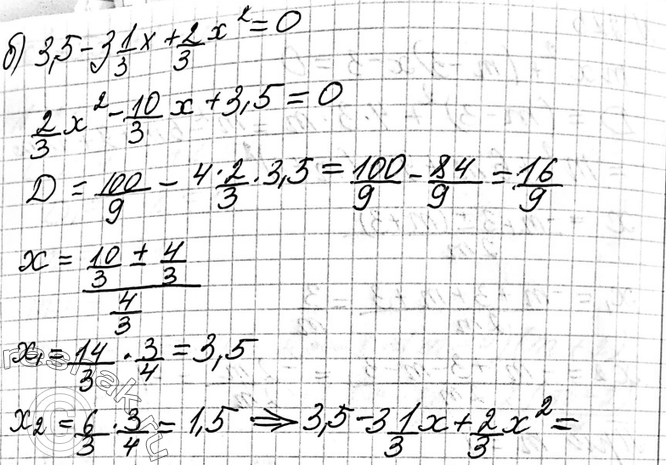 б) 3,5 - 3 1/3 x + 2/3 x² = 0
2/3 x² - 10/3 x + 3,5 = 0
D = 100/9 - 4 · 2/3 · 3,5 = 100/9 - 84/9 = 16/9
x = (10/3 ± 4/3) / (4/3)
x₁ = 14/3 · 3/4 = 3,5
x₂ = 6/3 · 3/4 = 1,5 ⇒ 3,5 - 3 1/3 x + 2/3 x² =